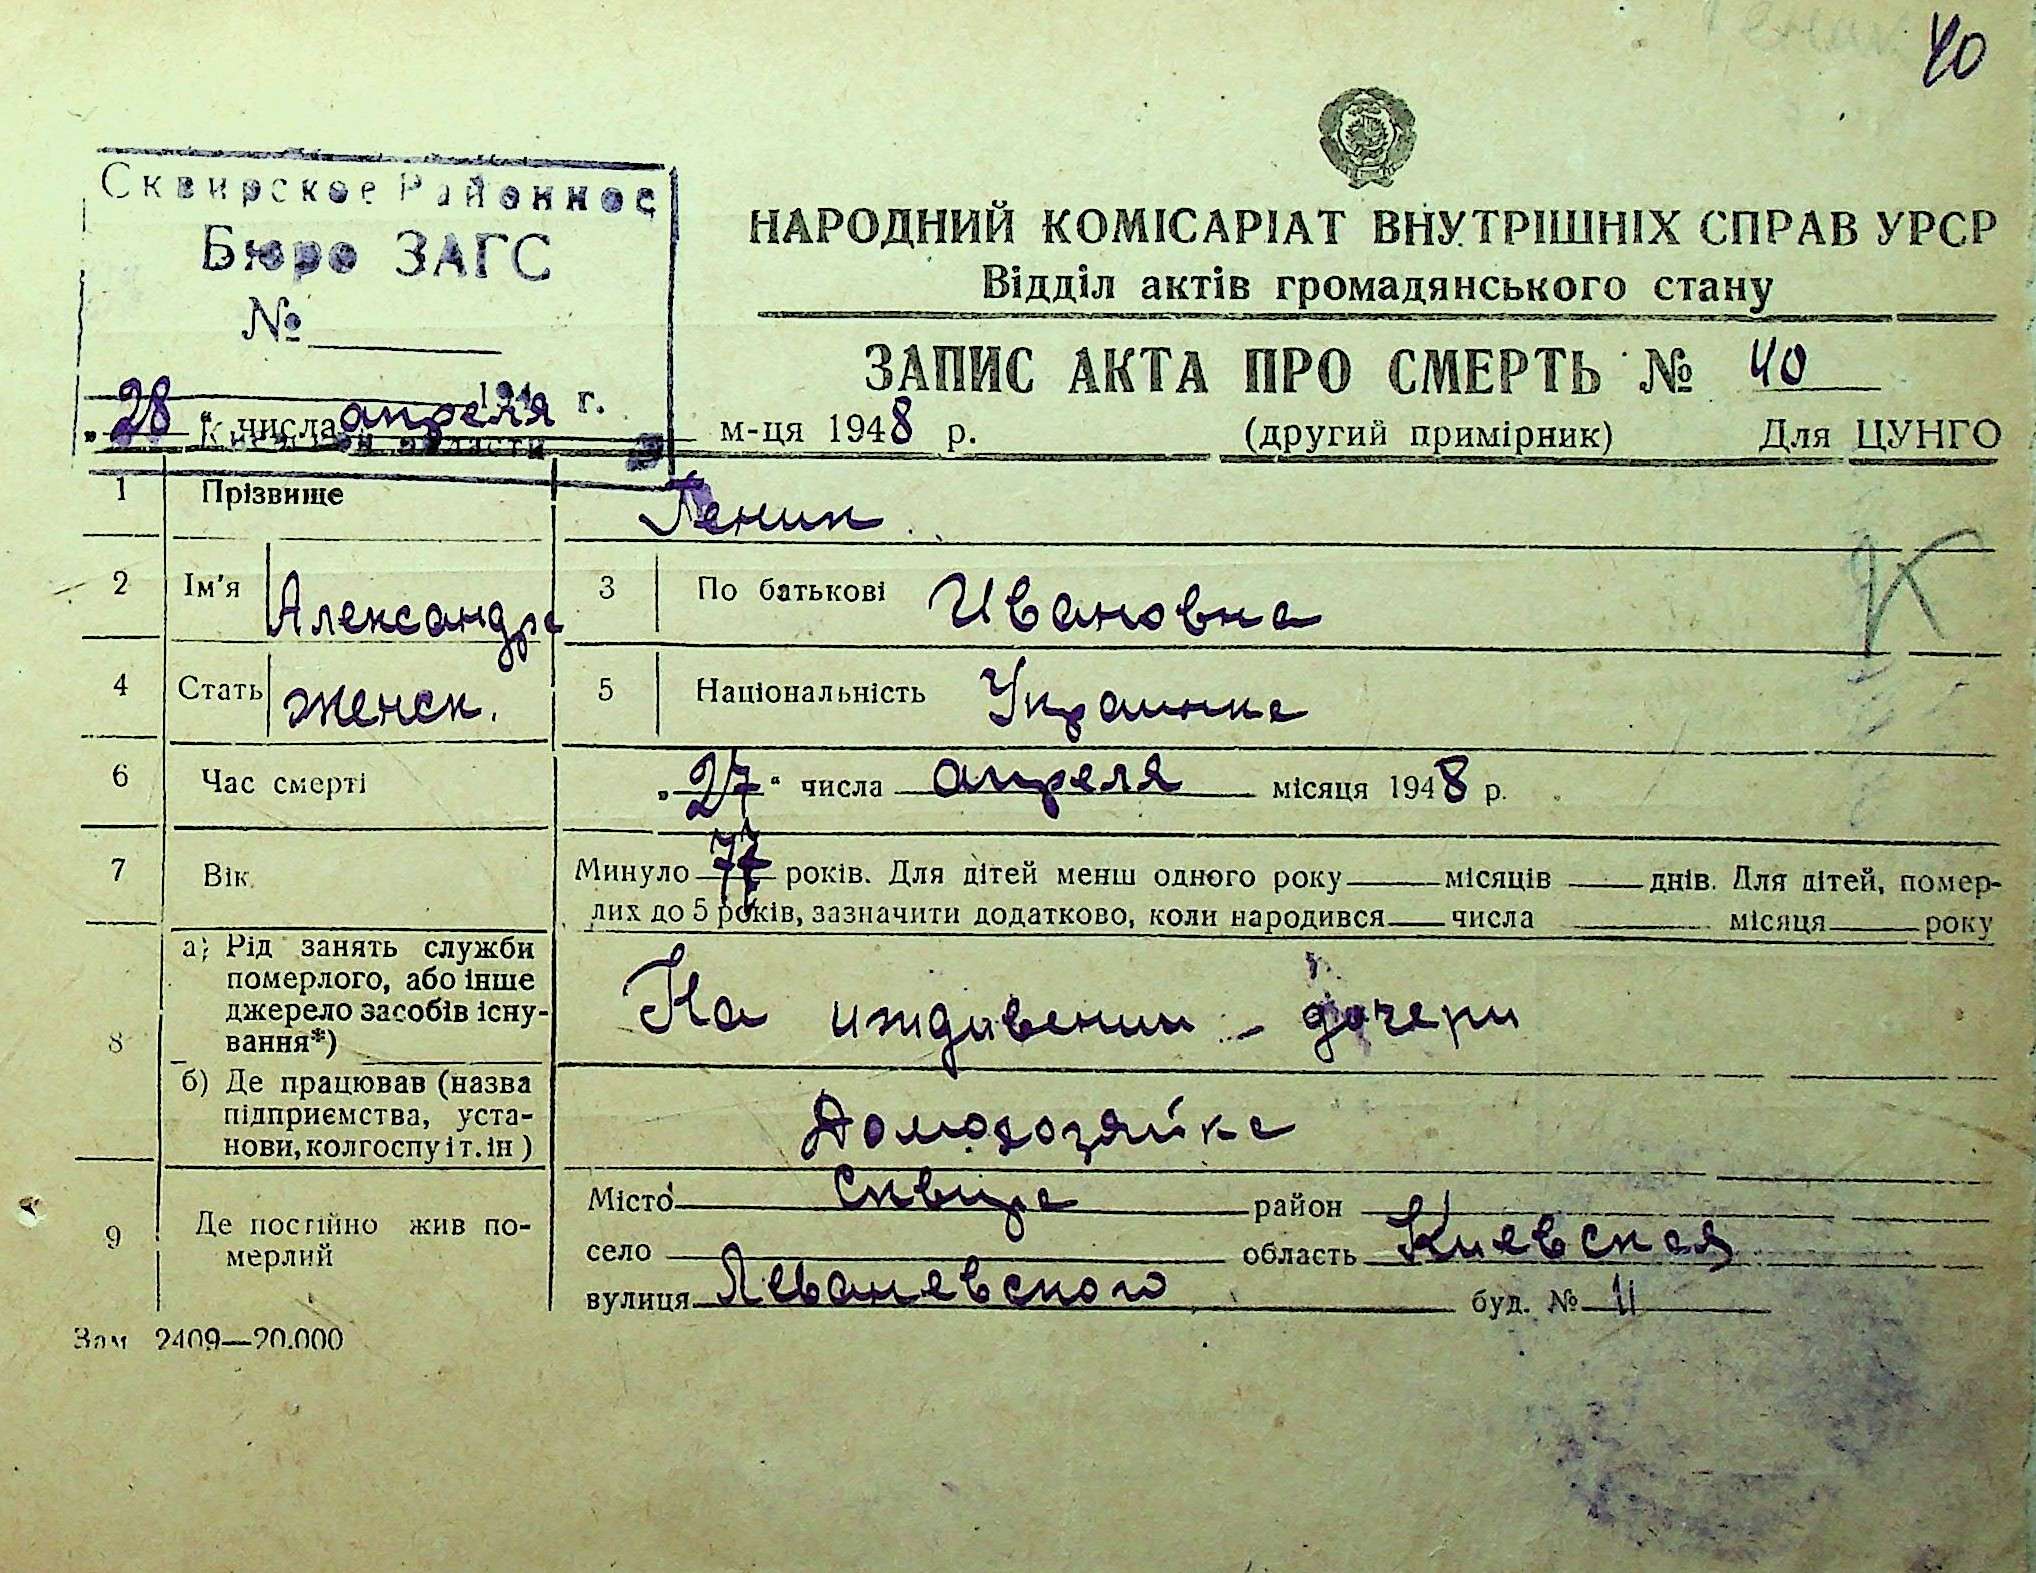 40
Сквирское Районное
Бюро ЗАГС
№
194 г.
Киевской области
НАРОДНИЙ КОМІСАРІАТ ВНУТРІШНІХ СПРАВ УРСР
Відділ актів громадянського стану
ЗАПИС АКТА ПРО СМЕРТЬ № 40
„28“ числа апреля м-ця 1948 р. (другий примірник) Для ЦУНГО
1 Прізвище Геник
2 Ім'я Александра 3 По батькові Ивановна
4 Стать женск. 5 Національність Украинка
6 Час смерті „27“ числа апреля місяця 1948 р.
7 Вік Минуло 77 років. Для дітей менш одного року місяців днів. Для дітей, помер-
лих до 5 років, зазначити додатково, коли народився числа місяця року
8 а) Рід занять служби
померлого, або інше
джерело засобів існу-
вання*)
На иждивении - дочери
б) Де працював (назва
підприємства, уста-
нови, колгоспу і т. ін)
Домохозяйка
9 Де постійно жив по-
мерлий
Місто Сквира район
село область Киевская
вулиця Леваневского буд. № 11
Зам 2409—20.000